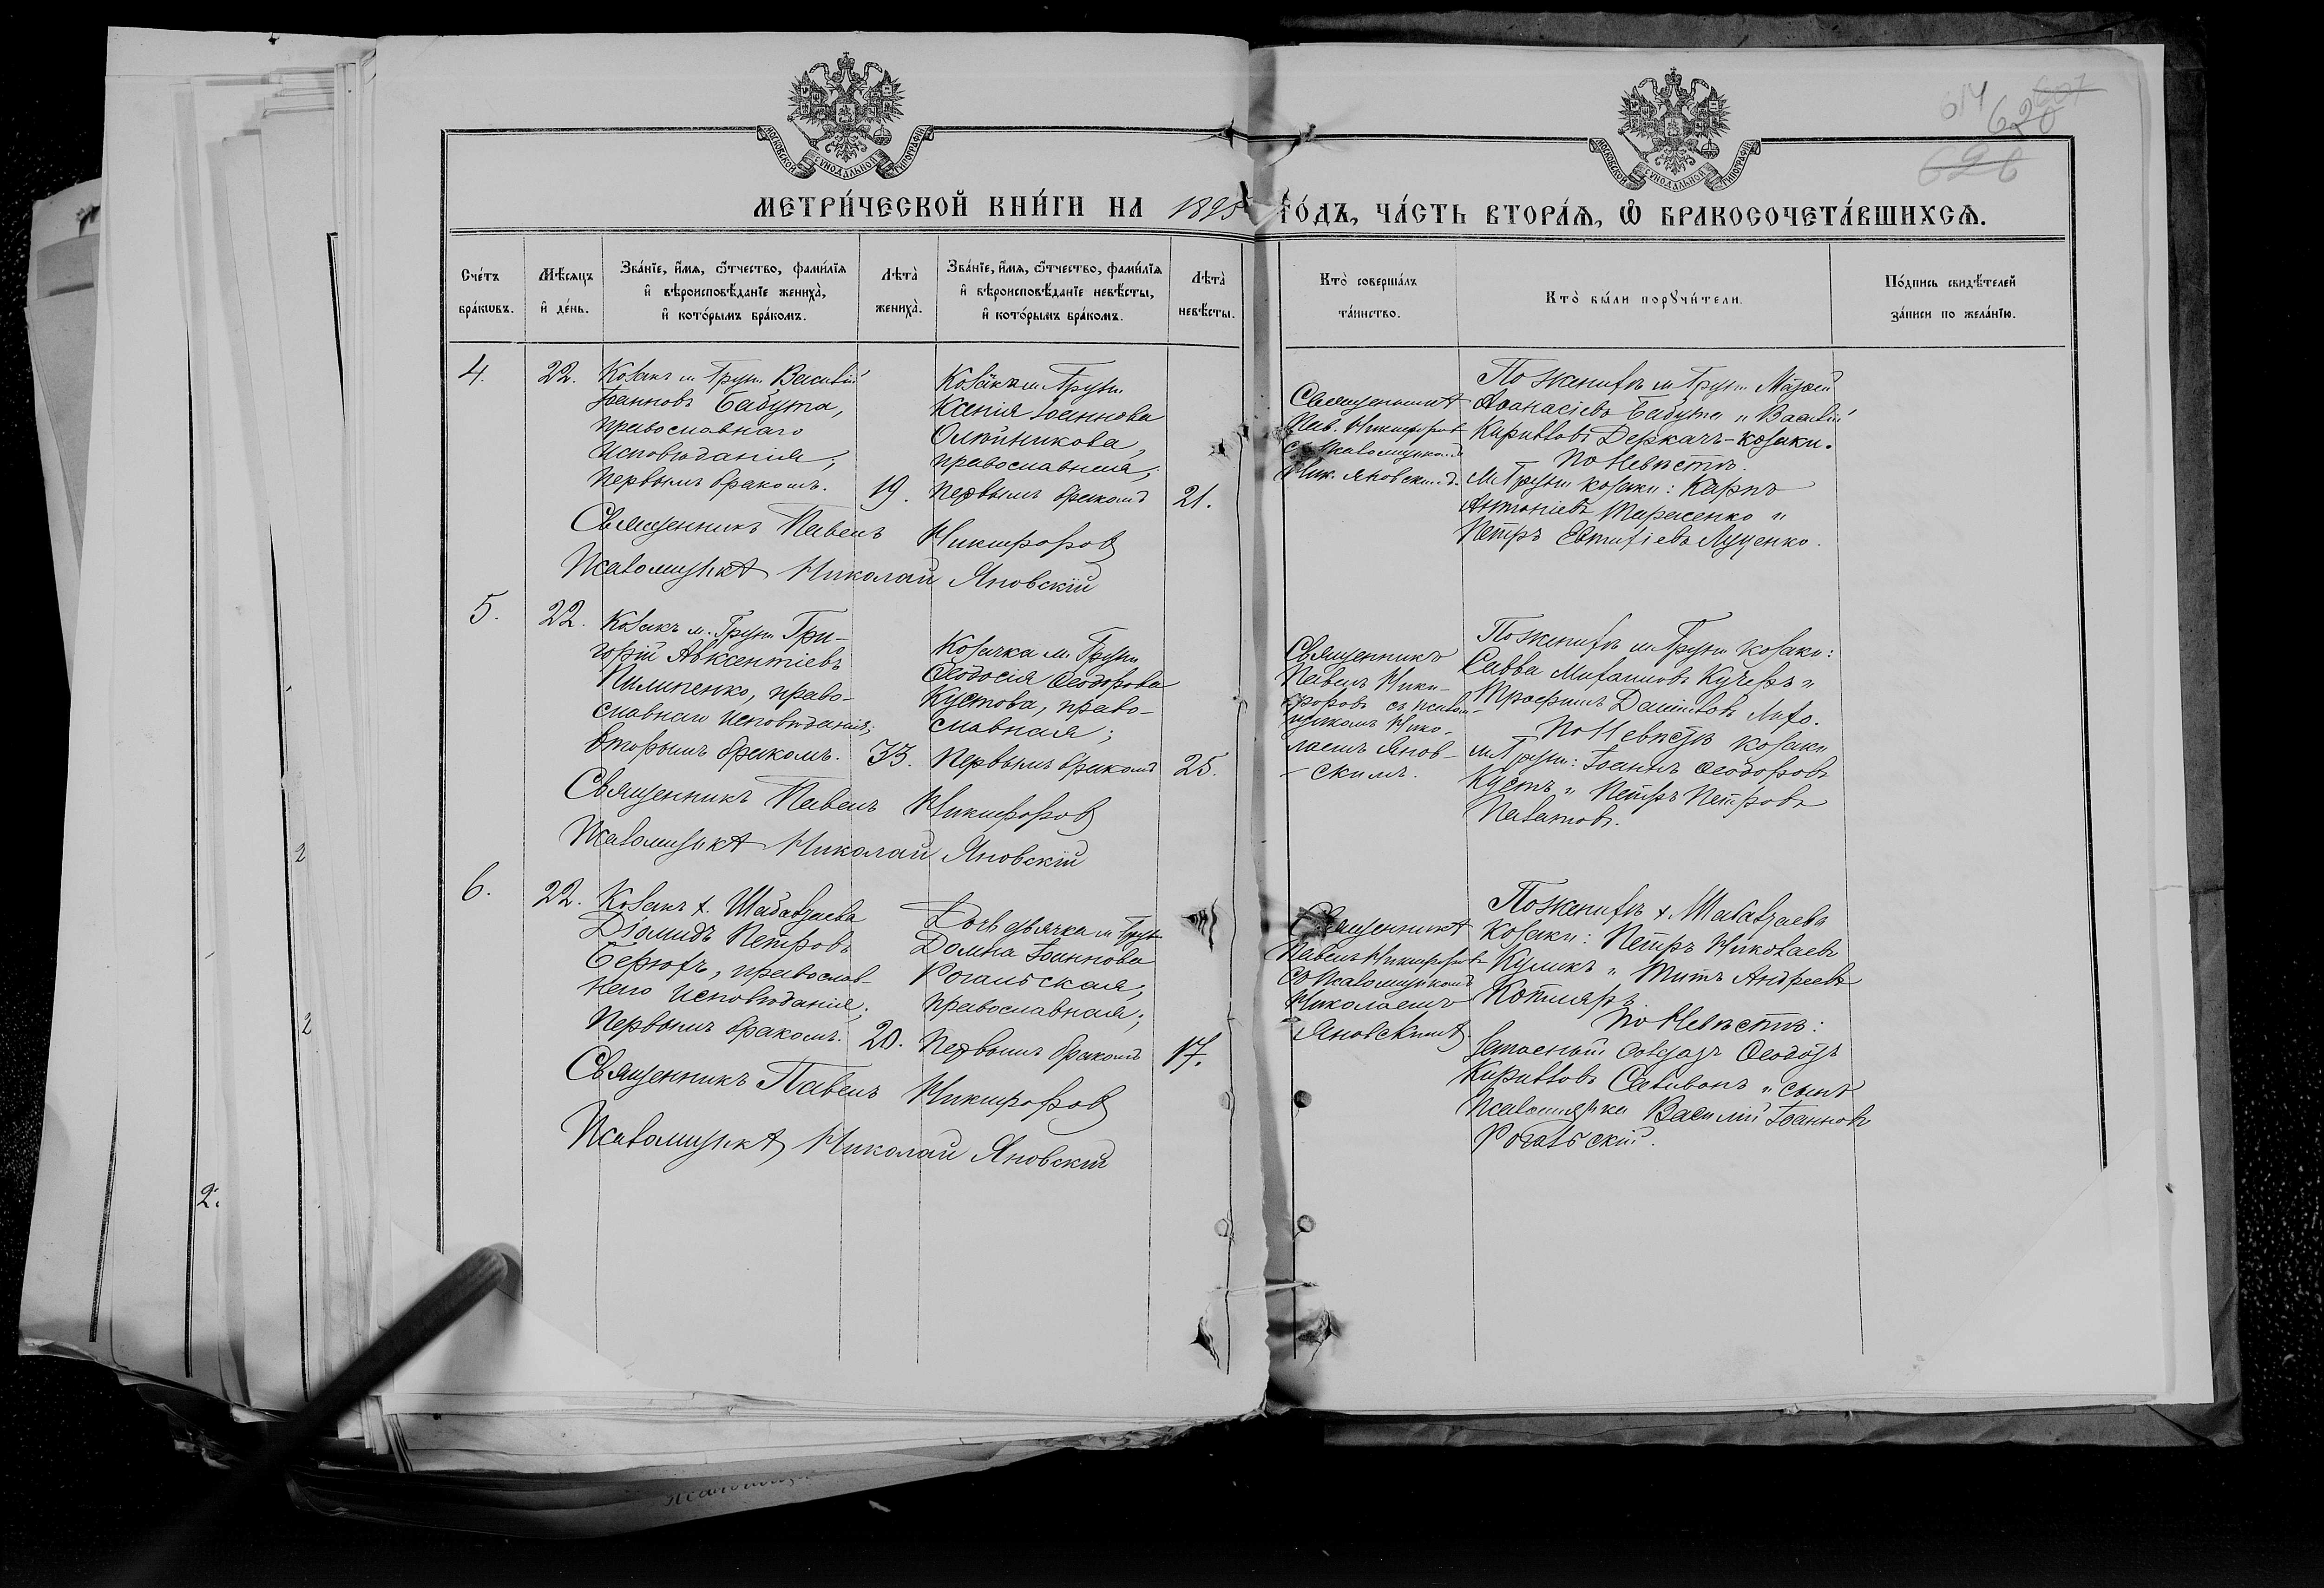 614 607
620
626
МЕТРИ́ЧЕСКОЙ КНИ́ГИ НА 1895 ГО́ДЪ, ЧА́СТЬ ВТОРА́Ѧ, Ѽ БРАКОСОЧЕТА́ВШИХСѦ.
Сче́тъ бра́кѡвъ.
Мѣ́сяцъ и҆ де́нь.
Зва́нїе, и҆́мѧ, ѻ҆́тчество, фами́лїѧ и҆ вѣроисповѣ́данїе жениха̀, и҆ кото́рымъ бра́комъ.
Лѣта̀ жениха̀.
Зва́нїе, и҆́мѧ, ѻ҆́тчество, фами́лїѧ и҆ вѣроисповѣ́данїе невѣ́сты, и҆ кото́рымъ бра́комъ.
Лѣта̀ невѣ́сты.
Кто̀ соверша́лъ та́инство.
Кто̀ бы́ли порꙋчи́тели.
По́дпись свидѣ́телей за́писи по жела́нїю.
4.
22.
Козакъ м. Грунь Василій
Іоанновъ Бабута,
православнаго
исповѣданія;
первымъ бракомъ.
19.
Ксенія Іоаннова
православная;
первымъ бракомъ
21.
Священникъ
Пав. Никифоровъ
съ Псаломщикомъ
Ник. Яновскимъ.
По женихѣ м. Грунь
Аѳанасіевъ Бабута и Василій
Кирилловъ Деркачъ - козаки.
По невѣстѣ.
м. Грунь козаки: Карпъ
Антоніевъ Тарасенко и
Петръ Евтихіевъ Луценко.
Священникъ Павелъ Никифоровъ
Псаломщикъ Николай Яновскій
5.
22.
Козакъ м. Грунь Гри-
горій Авксентіевъ
Пилипенко, право-
славнаго исповѣданія;
вторымъ бракомъ.
33.
Козачка м. Грунь
Ѳеодосія Ѳеодорова
Кустова, право-
славная;
первымъ бракомъ
25.
Священникъ
Павелъ Ники-
форовъ съ псалом-
щикомъ Нико-
лаемъ Янов-
скимъ.
По женихѣ м. Грунь козаки:
Савва Михаиловъ Кучеръ и
Трофимъ Даніиловъ
По невѣстѣ козаки
м. Грунь: Іоаннъ Ѳеодоровъ
Кустъ и Петръ Петровъ
Священникъ Павелъ Никифоровъ
Псаломщикъ Николай Яновскій
6.
22.
Козакъ х.
Діомидъ Петровъ
православ-
наго исповѣданія;
первымъ бракомъ.
20.
Дочь дьячка м. Грунь
Домна Іоаннова
Рогальская,
православная;
первымъ бракомъ
17.
Священникъ
Павелъ Никифоровъ
съ Псаломщикомъ
Николаемъ
Яновскимъ
По женихѣ х.
козаки: Петръ Николаевъ
Куликъ и Титъ Андреевъ
Котляръ.
По невѣстѣ:
Кирилловъ и сынъ
Псаломщика Василій Іоанновъ
Рогальскій.
Священникъ Павелъ Никифоровъ
Псаломщикъ Николай Яновскій
2
2
2.